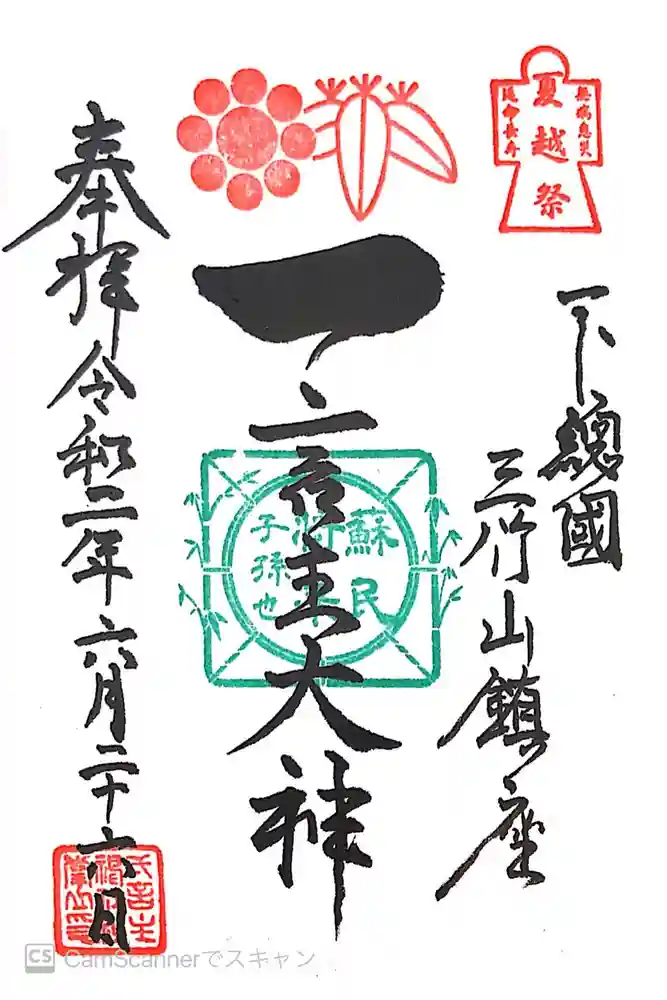 夏越祭
無病息災
延命長寿
下總國
三竹山鎮座
一言主大神
蘇民
将来
子孫也
奉拝 令和二年六月二十六日
CS CamScannerでスキャン